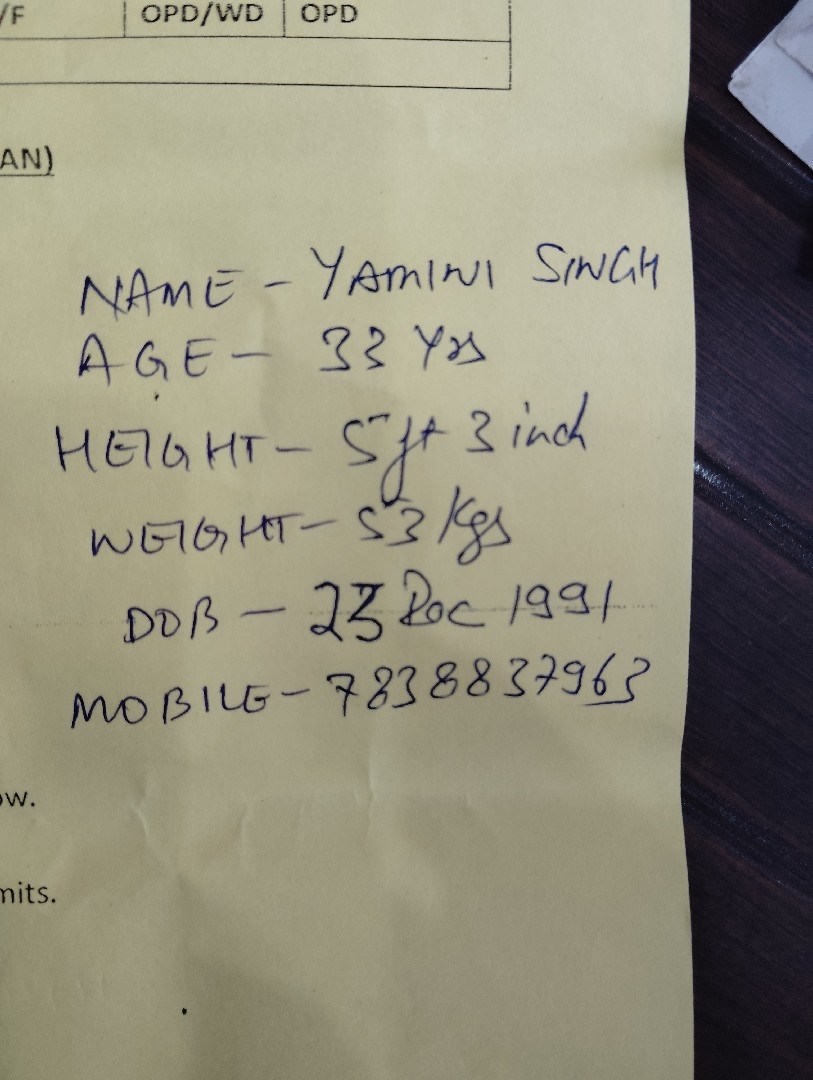 /F OPD/WD OPD
AN)
NAME - YAMINI SINGH
AGE - 33 Yrs
HEIGHT - 5 ft 3 inch
WEIGHT - 53 Kgs
DOB - 23 Dec 1991
MOBILE - 7838837963
ow.
mits.